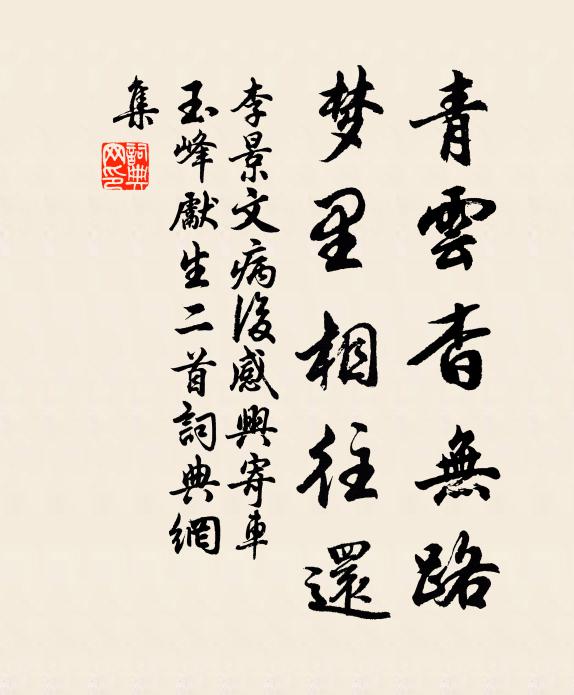 青雲杳無路
梦里相往還
李景文病後感興寄車
玉峰獻生二首詞典網
集
詞典
网印